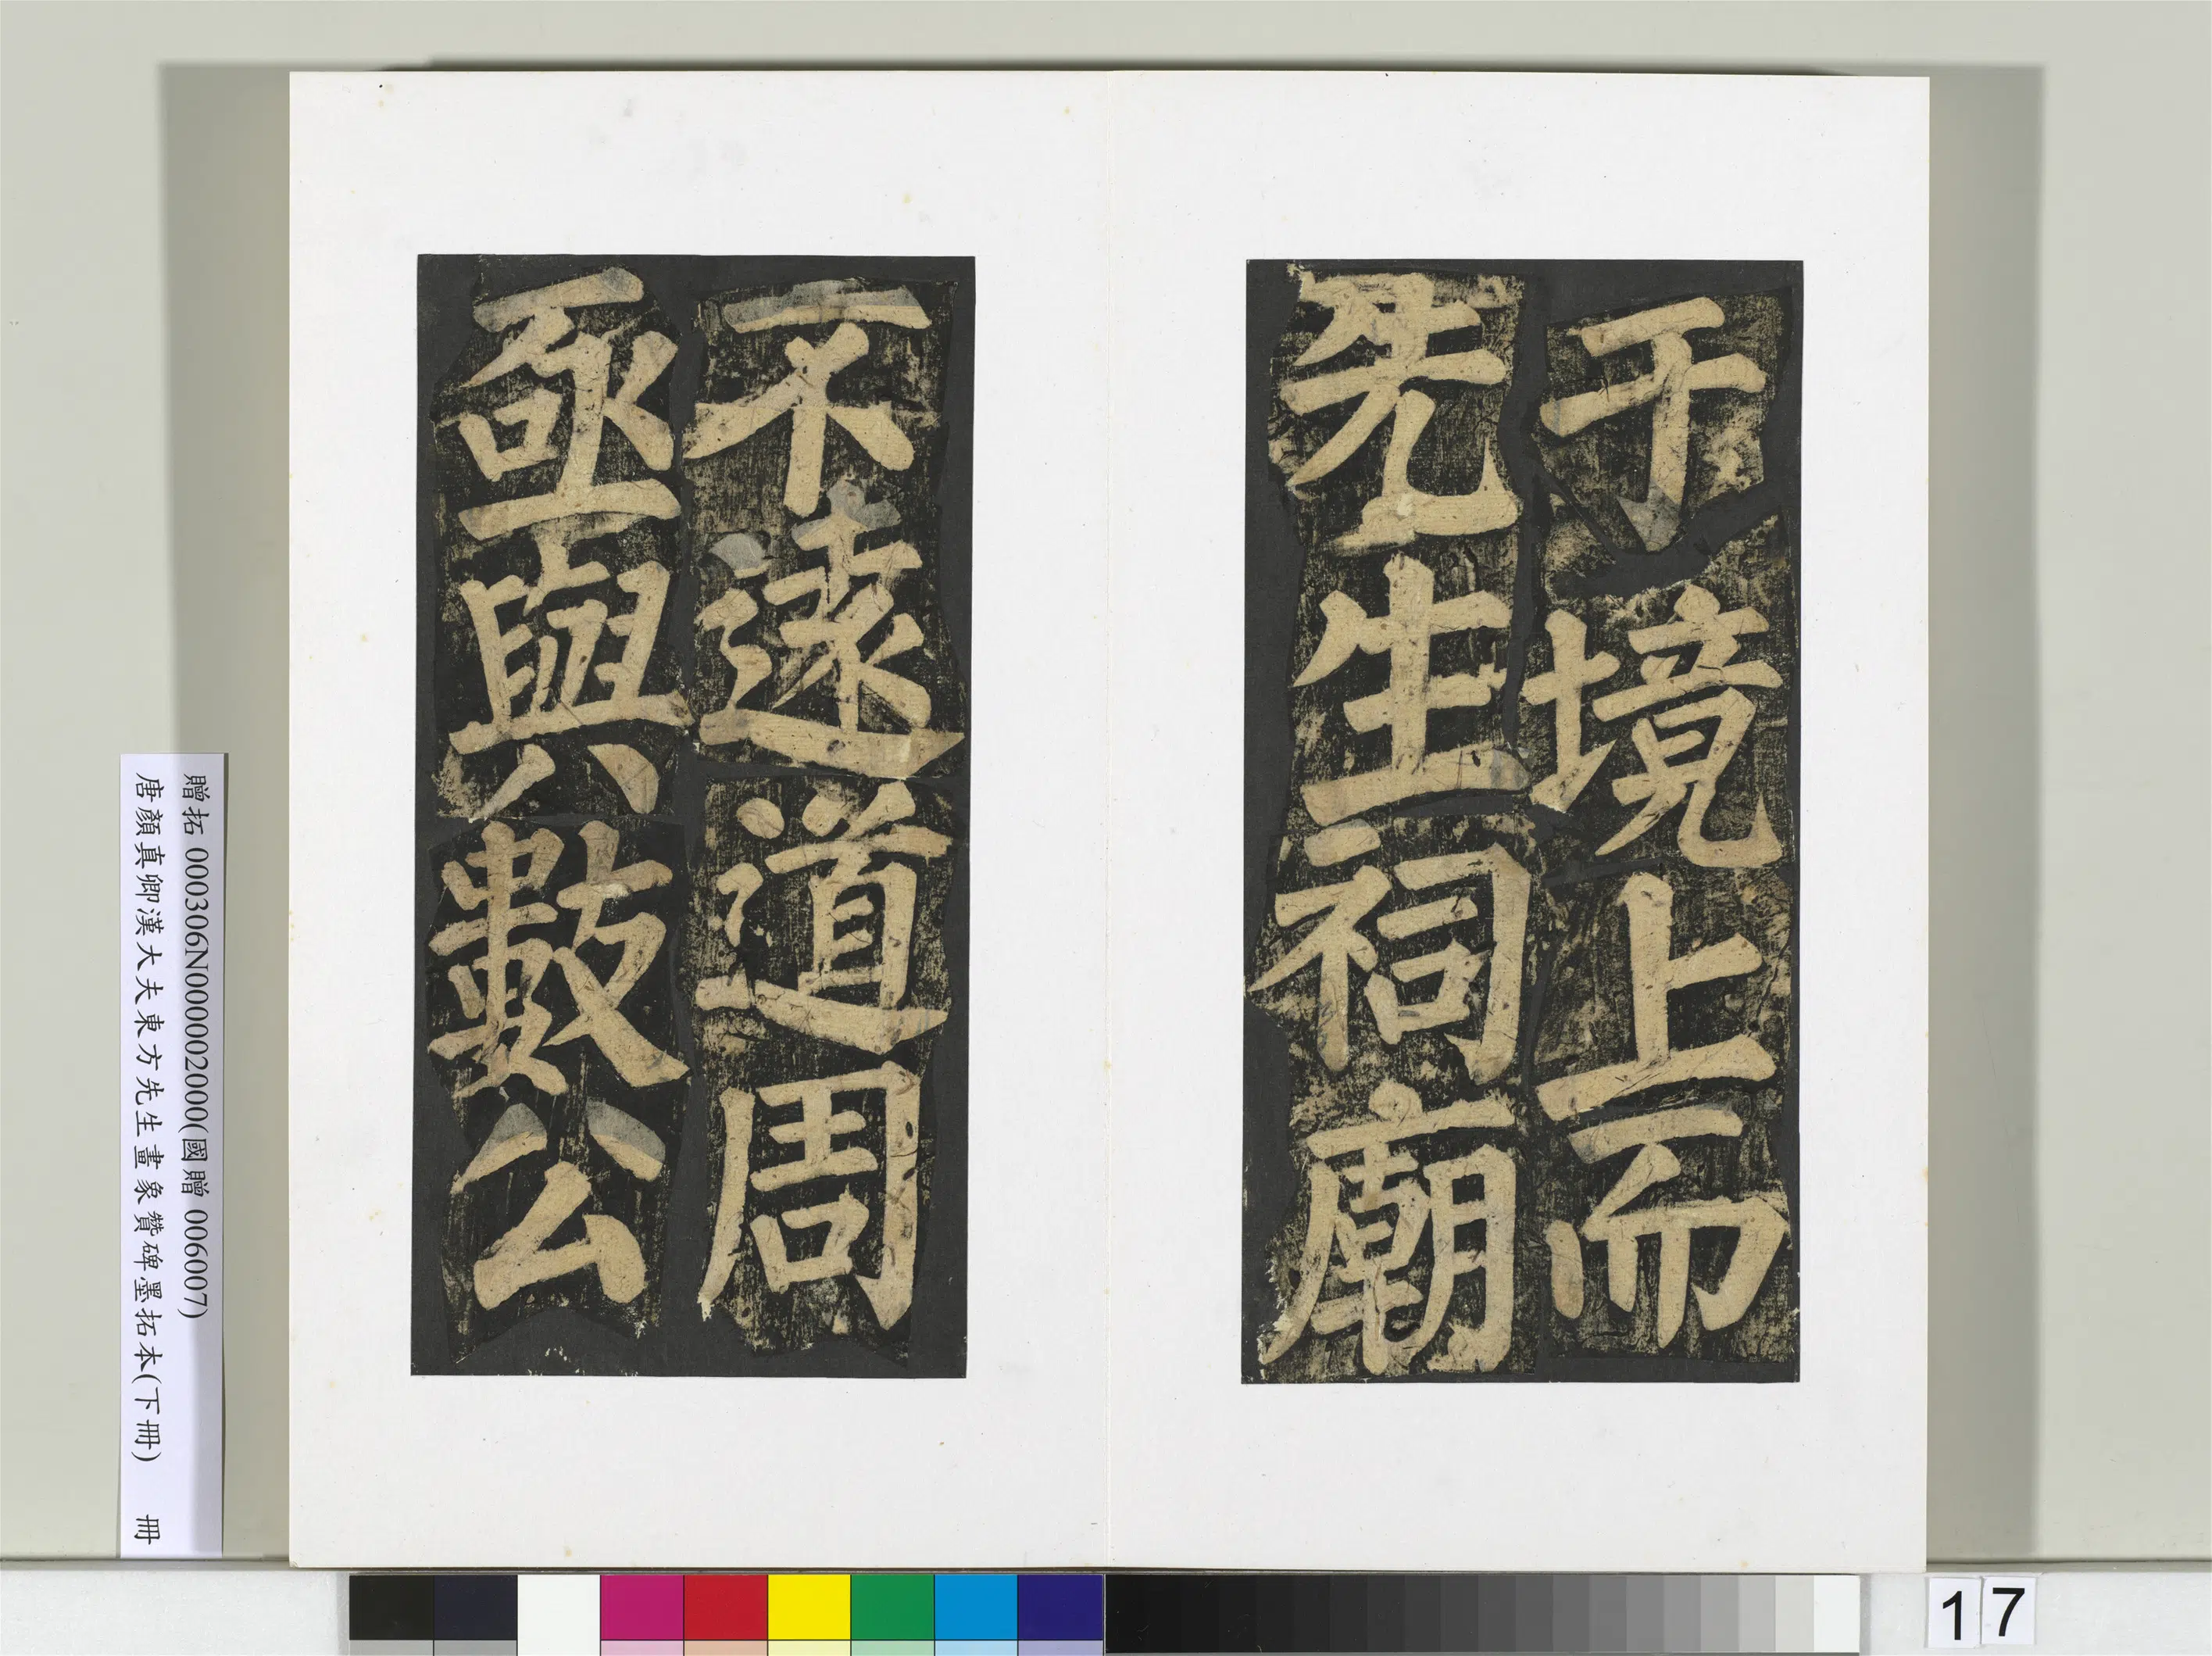 于境上而
先生祠廟
不遠道周
亟與數公
贈拓 000306N000002000(國贈 006007)
唐顏真卿漢大夫東方先生畫象贊碑墨拓本(下冊) 冊
17